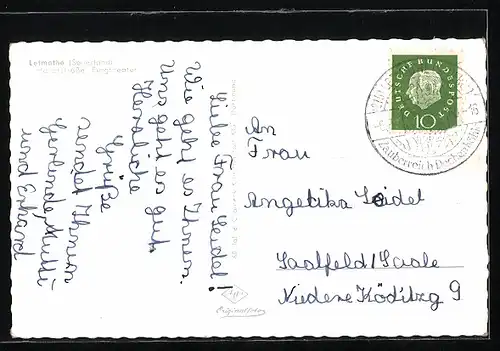 Letmathe (Sauerland)
Liebe Frau Seidel!
Wie geht es Ihnen.
Uns geht es gut.
Herzliche
Grüße
sendet Ihnen
Gerlinde, Mutti
und Erhard
DEUTSCHE BUNDESPOST
10
An
Frau
Angelika Seidel
Saalfeld/Saale
Niedere Köditzg 9
Originalfoto